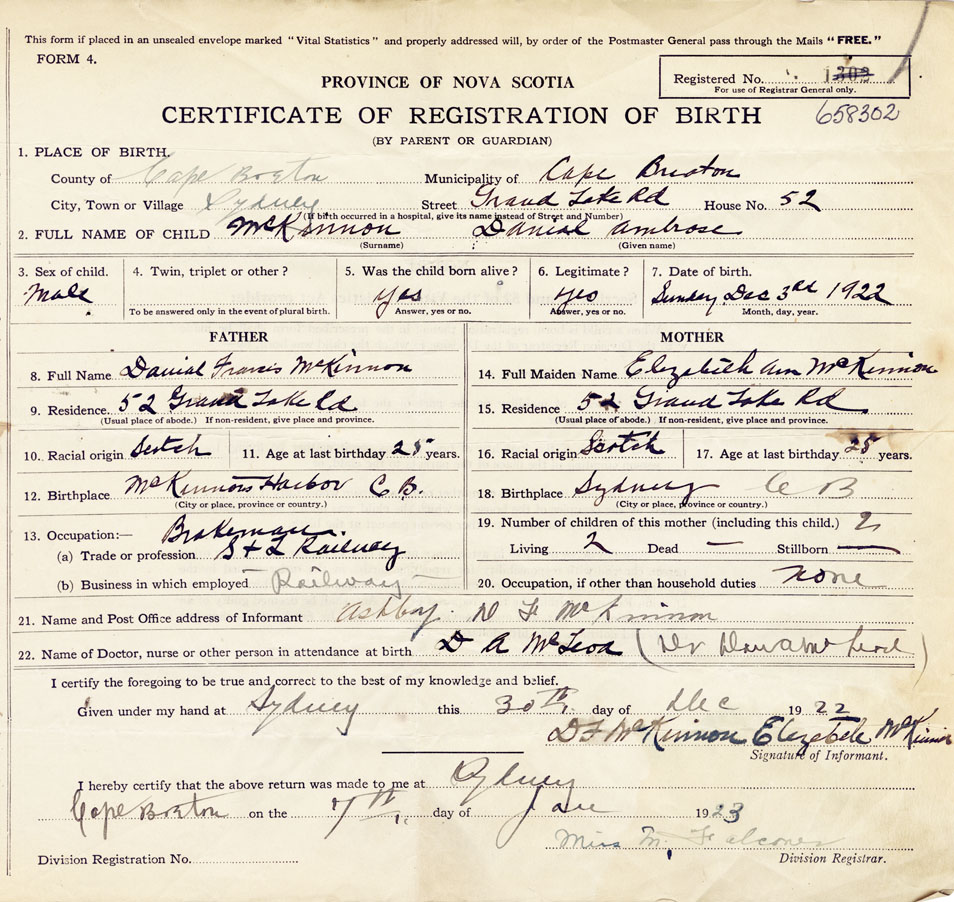 This form if placed in an unsealed envelope marked "Vital Statistics" and properly addressed will, by order of the Postmaster General pass through the Mails "FREE."
FORM 4.
PROVINCE OF NOVA SCOTIA
Registered No. 1303
For use of Registrar General only.
CERTIFICATE OF REGISTRATION OF BIRTH
658302
(BY PARENT OR GUARDIAN)
1. PLACE OF BIRTH.
County of Cape Breton Municipality of Cape Breton
City, Town or Village Sydney Street Grand Lake Rd House No. 52
(If birth occurred in a hospital, give its name instead of Street and Number)
2. FULL NAME OF CHILD McKinnon Danial Ambrose
(Surname) (Given name)
3. Sex of child. 4. Twin, triplet or other? 5. Was the child born alive? 6. Legitimate? 7. Date of birth.
Male yes yes Sunday Dec 3rd 1922
To be answered only in the event of plural birth. Answer, yes or no. Answer, yes or no. Month, day, year.
FATHER MOTHER
8. Full Name Danial Francis McKinnon 14. Full Maiden Name Elezabeth Ann McKinnon
9. Residence. 52 Grand Lake Rd 15. Residence 52 Grand Lake Rd
(Usual place of abode.) If non-resident, give place and province. (Usual place of abode.) If non-resident, give place and province.
10. Racial origin Scotch 11. Age at last birthday 28 years. 16. Racial origin Scotch 17. Age at last birthday 25 years.
12. Birthplace McKinnons Harbor C B. 18. Birthplace Sydney C B
(City or place, province or country.) (City or place, province or country.)
13. Occupation:— Brakeman 19. Number of children of this mother (including this child.) 2
(a) Trade or profession S & L Railway Living 2 Dead — Stillborn —
(b) Business in which employed Railway 20. Occupation, if other than household duties none
21. Name and Post Office address of Informant Ashby. D F McKinnon
22. Name of Doctor, nurse or other person in attendance at birth D A McLeod (Dr
I certify the foregoing to be true and correct to the best of my knowledge and belief.
Given under my hand at Sydney this 30th day of Dec 1922
D F McKinnon Elezabeth McKinnon
Signature of Informant.
I hereby certify that the above return was made to me at Sydney
Cape Breton on the 7th day of Jan 1923
Miss M. Falconer
Division Registration No. Division Registrar.